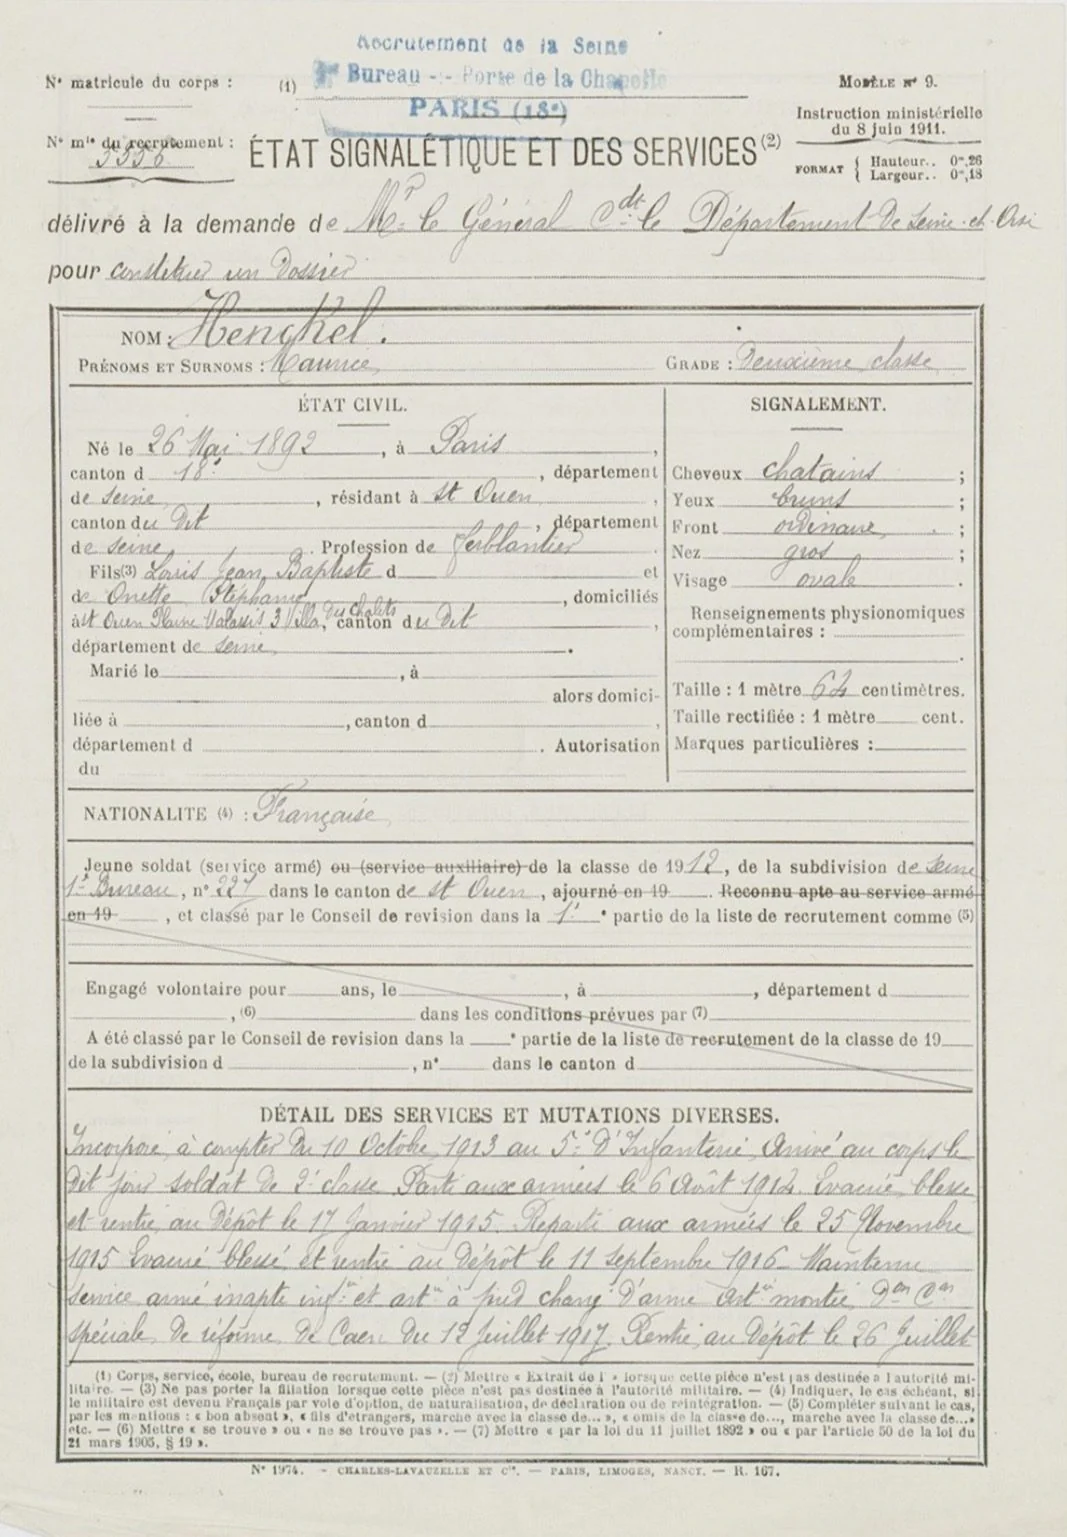 Recrutement de la Seine
Bureau -:- Porte de la Chapelle
PARIS (18e)
N° matricule du corps :
(1)
MODÈLE N° 9.
Instruction ministérielle
du 8 juin 1911.
N° mle du recrutement :
ÉTAT SIGNALÉTIQUE ET DES SERVICES (2)
FORMAT { Hauteur.. 0m,26
Largeur.. 0m,18
délivré à la demande de Mr le Général Cdt le Département de Seine-et-Oise
pour constituer un Dossier
NOM : Henckel.
PRÉNOMS ET SURNOMS : Maurice GRADE : Deuxième classe
ÉTAT CIVIL.
Né le 26 Mai 1892, à Paris,
canton d 18e, département
de Seine, résidant à St Ouen,
canton du Dit, département
de Seine. Profession de ferblantier.
Fils (3) Louis Jean Baptiste d et
de Stéphanie, domiciliés
à St Ouen 3 Villa des Chalets, canton du Dit,
département de Seine.
Marié le , à
alors domici-
liée à , canton d ,
département d . Autorisation
du
SIGNALEMENT.
Cheveux chatains ;
Yeux bruns ;
Front ordinaire ;
Nez gros ;
Visage ovale .
Renseignements physionomiques
complémentaires :
.
Taille : 1 mètre 64 centimètres.
Taille rectifiée : 1 mètre cent.
Marques particulières :
NATIONALITE (4) : Française
Jeune soldat (service armé) ou (service auxiliaire) de la classe de 1912, de la subdivision de Seine
1er Bureau, n° 227 dans le canton de St Ouen, ajourné en 19 . Reconnu apte au service armé
en 19 , et classé par le Conseil de revision dans la 1e partie de la liste de recrutement comme (5)
Engagé volontaire pour ans, le , à , département d
, (6) dans les conditions prévues par (7)
A été classé par le Conseil de revision dans la e partie de la liste de recrutement de la classe de 19
de la subdivision d , n° dans le canton d
DÉTAIL DES SERVICES ET MUTATIONS DIVERSES.
Incorporé à compter du 10 Octobre 1913 au 5e d'Infanterie, Arrivé au corps le
dit jour soldat de 2e classe Parti aux armées le 6 Août 1914. Evacué blessé
et rentré au Dépôt le 17 Janvier 1915. Reparti aux armées le 25 Novembre
1915 Evacué blessé et rentré au Dépôt le 11 Septembre 1916 Maintenu
service armé inapte infie et artie à pied chang. d'arme artie montée Don Con
spéciale de réforme de Caen du 12 Juillet 1917. Rentré au Dépôt le 26 Juillet
(1) Corps, service, école, bureau de recrutement. — (2) Mettre « Extrait de l' » lorsque cette pièce n'est pas destinée à l'autorité mi-
litaire. — (3) Ne pas porter la filiation lorsque cette pièce n'est pas destinée à l'autorité militaire. — (4) Indiquer, le cas échéant, si
le militaire est devenu Français par voie d'option, de naturalisation, de déclaration ou de réintégration. — (5) Compléter suivant le cas,
par les mentions : « bon absent », « fils d'étrangers, marche avec la classe de... », « omis de la classe de..., marche avec la classe de...»
etc. — (6) Mettre « se trouve » ou « ne se trouve pas ». — (7) Mettre « par la loi du 11 juillet 1892 » ou « par l'article 50 de la loi du
21 mars 1905, § 19 ».
N° 1974. - CHARLES-LAVAUZELLE ET Cie. — PARIS, LIMOGES, NANCY. — R. 167.